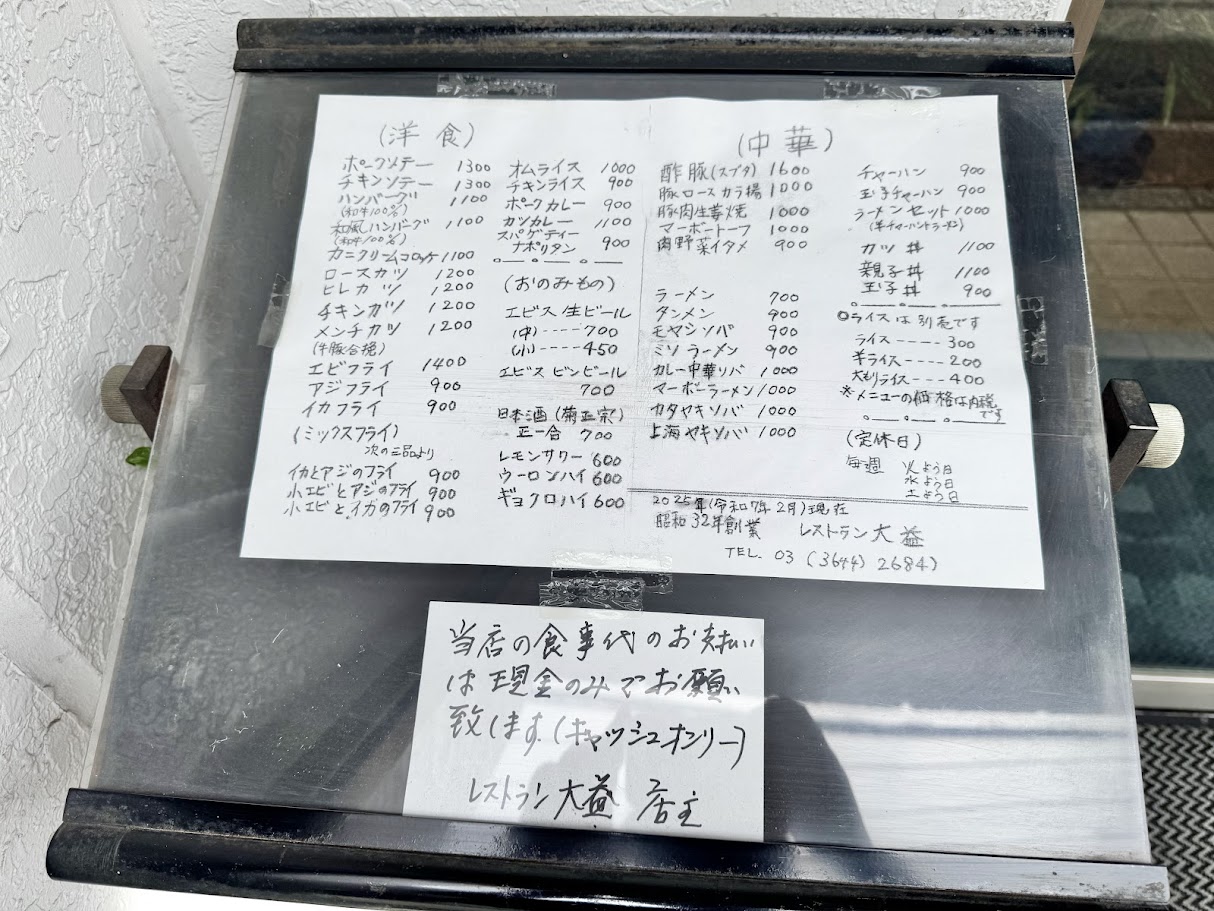 (洋食)
ポークソテー 1300
チキンソテー 1300
ハンバーグ 1100
(和牛100%)
和風ハンバーグ 1100
(和牛100%)
カニクリームコロッケ 1100
ロースカツ 1200
ヒレカツ 1200
チキンカツ 1200
メンチカツ 1200
(牛豚合挽)
エビフライ 1400
アジフライ 900
イカフライ 900
(ミックスフライ)
次の二品より
イカとアジのフライ 900
小エビとアジのフライ 900
小エビとイカのフライ 900
オムライス 1000
チキンライス 900
ポークカレー 900
カツカレー 1100
スパゲティー
ナポリタン 900
(おのみもの)
エビス生ビール
(中)----700
(小)----450
エビスビンビール
700
日本酒(菊正宗)
正一合 700
レモンサワー 600
ウーロンハイ 600
ギョクロハイ 600
(中華)
酢豚(スブタ) 1600
豚ロースカラ揚 1000
豚肉生姜焼 1000
マーボートーフ 1000
肉野菜イタメ 900
ラーメン 700
タンメン 900
モヤシソバ 900
ミソラーメン 900
カレー中華ソバ 1000
マーボーラーメン 1000
カタヤキソバ 1000
上海ヤキソバ 1000
チャーハン 900
玉子チャーハン 900
ラーメンセット 1000
(半チャーハンとラーメン)
カツ丼 1100
親子丼 1100
玉子丼 900
◎ライスは別売です
ライス-----300
半ライス----200
大もりライス---400
※メニューの価格は内税
です
(定休日)
毎週 火よう日
水よう日
土よう日
2025年(令和7年2月)現在
昭和32年創業 レストラン大益
TEL. 03 (3644) 2684)
当店の食事代のお支払い
は現金のみでお願い
致します.(キャッシュオンリー)
レストラン大益 店主